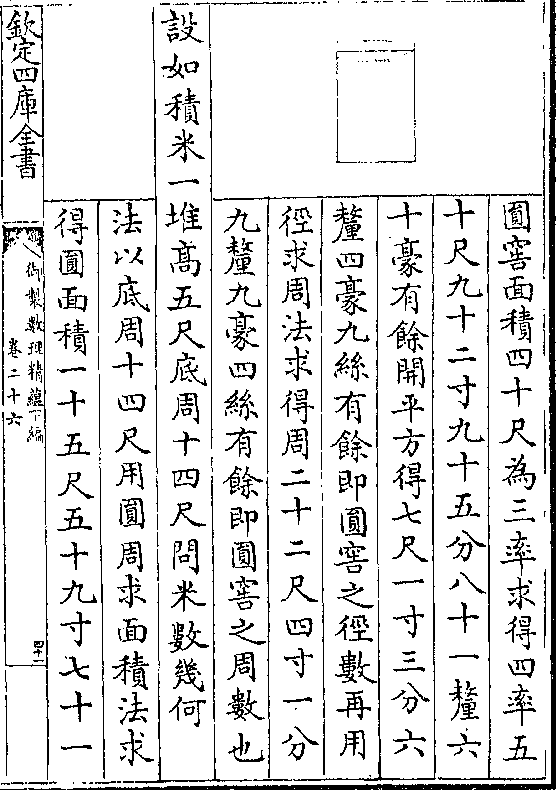 圓窖面積四十尺為三率求得四率五
十尺九十二寸九十五分八十一釐六
十豪有餘開平方得七尺一寸三分六
釐四豪九絲有餘即圓窖之徑數再用
徑求周法求得周二十二尺四寸一分
九釐九豪四絲有餘即圓窖之周數也
設如積米一堆高五尺底周十四尺問米數幾何
法以底周十四尺用圓周求面積法求
得圓面積一十五尺五十九寸七十一
欽定四庫全書
御製數理精藴下編
卷二十六
四十一